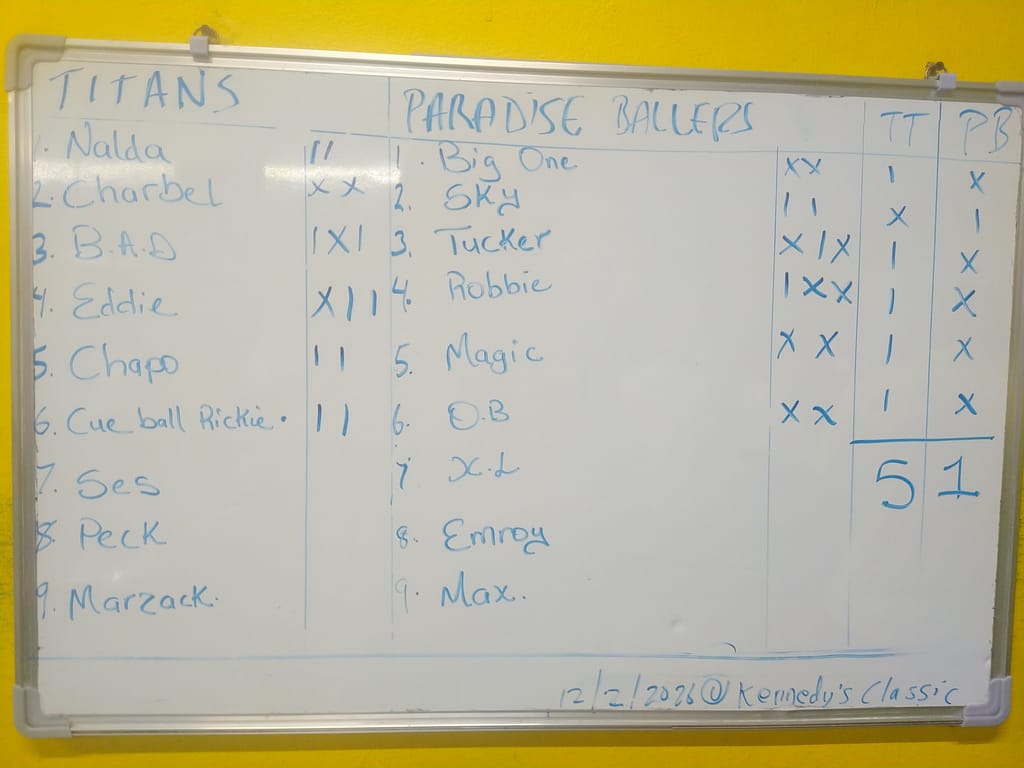 TITANS PARADISE BALLERS TT PB
1. Nalda 11 1. Big One XX 1 X
2. Charbel XX 2. Sky 11 X 1
3. B.A.D 1X1 3. Tucker X1X 1 X
4. Eddie X11 4. Robbie 1XX 1 X
5. Chapo 11 5. Magic XX 1 X
6. Cue ball Rickie. 11 6. O.B XX 1 X
7. Ses 7 X.L 5 1
8. Peck 8. Emroy
9. Marzack. 9. Max.
12/2/2026@Kennedy's Classic